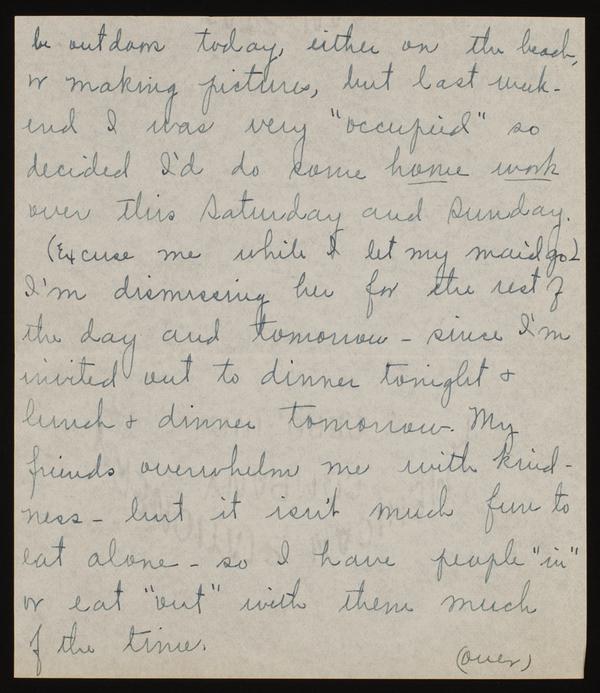 be outdoors today, either on the beach,
or making pictures, but last week-
end I was very "occupied" so
decided I'd do some home work
over this Saturday and Sunday.
(Excuse me while I let my maid go)
I'm dismissing her for the rest of
the day and tomorrow - since I'm
invited out to dinner tonight &
lunch & dinner tomorrow. My
friends overwhelm me with kind-
ness - but it isn't much fun to
eat alone - so I have people "in"
or eat "out" with them much
of the time.
(over)